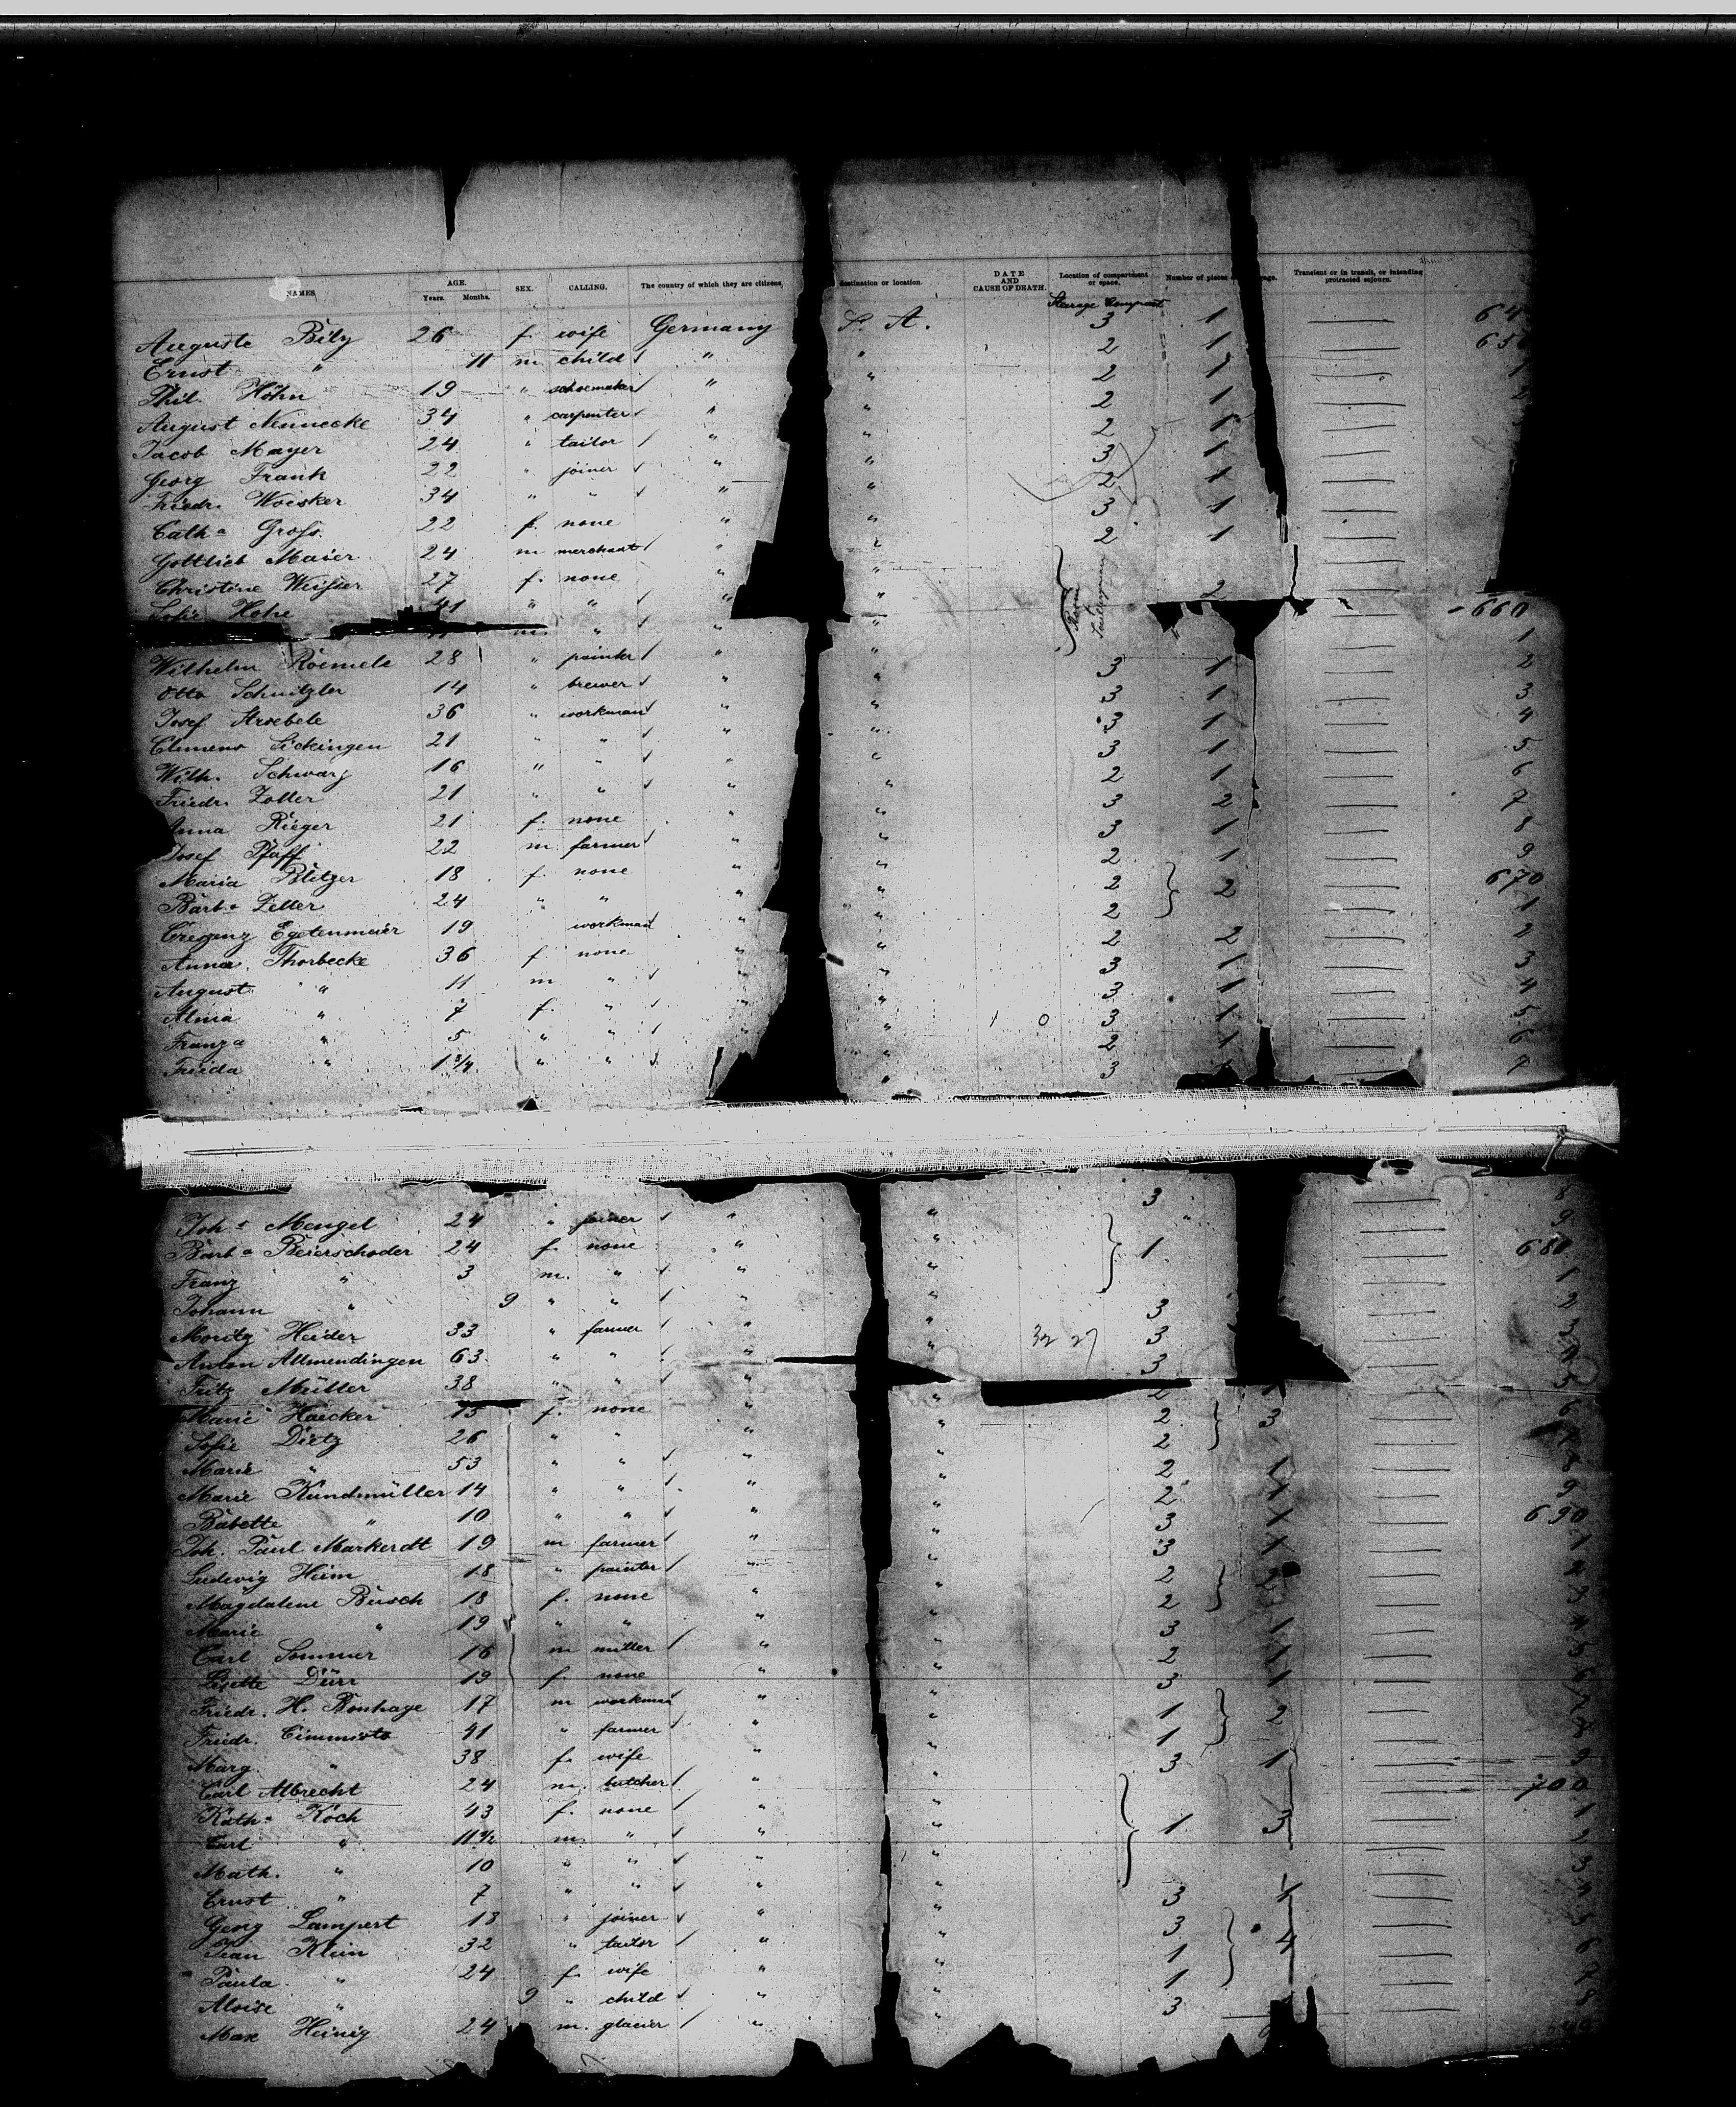 NAMES. AGE. Years. Months. SEX. CALLING. The country of which they are citizens. destination or location. DATE AND CAUSE OF DEATH. Location of compartment or space. Number of pieces Transient or in transit, or intending protracted sojourn.
Auguste 26 f. wife Germany 3 1 —
Ernst " 11 m child " " 2 1 — 650
Phil. Höhn 19 " schoemaker " " 2 1 — 1
August Nennecke 34 " carpenter " " 2 1 —
Jacob Mayer 24 " tailor " " 2 1 —
Georg Frank 22 " joiner " " 3 1 —
Friedr. Woesker 34 " " " " 2 1 —
Cath a Gross 22 f. none " " 3 1 —
Gottlieb Maier 24 m merchant " " 2 1 —
Christine 27 f. none " " —
Sofie Hohe 41 " " " " 2 — 660
m. " " " — 1
Wilhelm Roemele 28 " painter " " 3 1 — 2
Otto Schnitzler 14 " brewer " " 3 1 — 3
Josef Stroebele 36 " workman " " 3 1 — 4
Clemens Sickingen 21 " " " " 3 1 — 5
Wilh. Schwarz 16 " " " " 2 1 — 6
Friedr. Zoller 21 " " " " 3 2 — 7
Anna Rieger 21 f. none " " 3 1 — 8
Josef Pfaff 22 m farmer " " 2 1 — 9
Maria Bletzer 18 f. none " " 2 2 — 670
Barb a Zeller 24 " " " " 2 — 1
Crescenz Egetenmeier 19 workman " " 2 2 — 2
Anna Thorbecke 36 f. none " " 3 1 — 3
August " 11 m " " " 3 1 — 4
Alma " 7 f. " " " 1 0 3 1 — 5
Franz a " 5 " " " " 2 1 — 6
Frieda " 1 3/4 " " " " 3 — 7
Joh s Mengel 24 " joiner " " 3 — 8
Barb a Beierschoder 24 f. none " " 1 — 680
Franz " 3 m. " " " — 1
Johann " 9 " " " " 3 — 2
Moritz Heider 33 " farmer " " 3 —
Anton Allmendingen 63 " " " " 3 —
Fritz Müller 38 " " " " 2 — 5
Marie Haecker 15 f. none " " 2 3 — 6
Sofie Dietz 26 " " " " 2 —
Marie " 53 " " " " 2 1 —
Marie Kundmüller 14 " " " " 2 1 — 9
Babette " 10 " " " " 3 1 — 690
Joh. Paul Markerdt 19 m farmer " " 3 1 — 1
Ludwig Heim 18 " painter " " 2 —
Magdalene Busch 18 f. none " " 2 — 3
Marie " 19 " " " " 3 1 — 4
Carl Sommer 16 m miller " " 2 1 — 5
Lisette Dürr 19 f. none " " 3 1 — 6
Friedr. H. Bonhage 17 m workman " " 1 2 —
Friedr. 41 " farmer " " 1 —
Marg. " 38 f. wife " " 3 1 — 9
Carl Albrecht 24 m. butcher " " — 700
Kath a Koch 43 f. none " " 1 3 — 1
Carl " 11 1/2 m. " " " — 2
Math. " 10 " " " " — 3
Ernst " 7 " " " " 3 1 — 4
Georg Lampert 18 " joiner " " 3 — 5
Jean Klein 32 " tailor " " 1 — 6
Paula " 24 f. wife " " 1 —
Aloise " 9 " child " " 3 — 8
Max Heinig 24 m. glacier " "